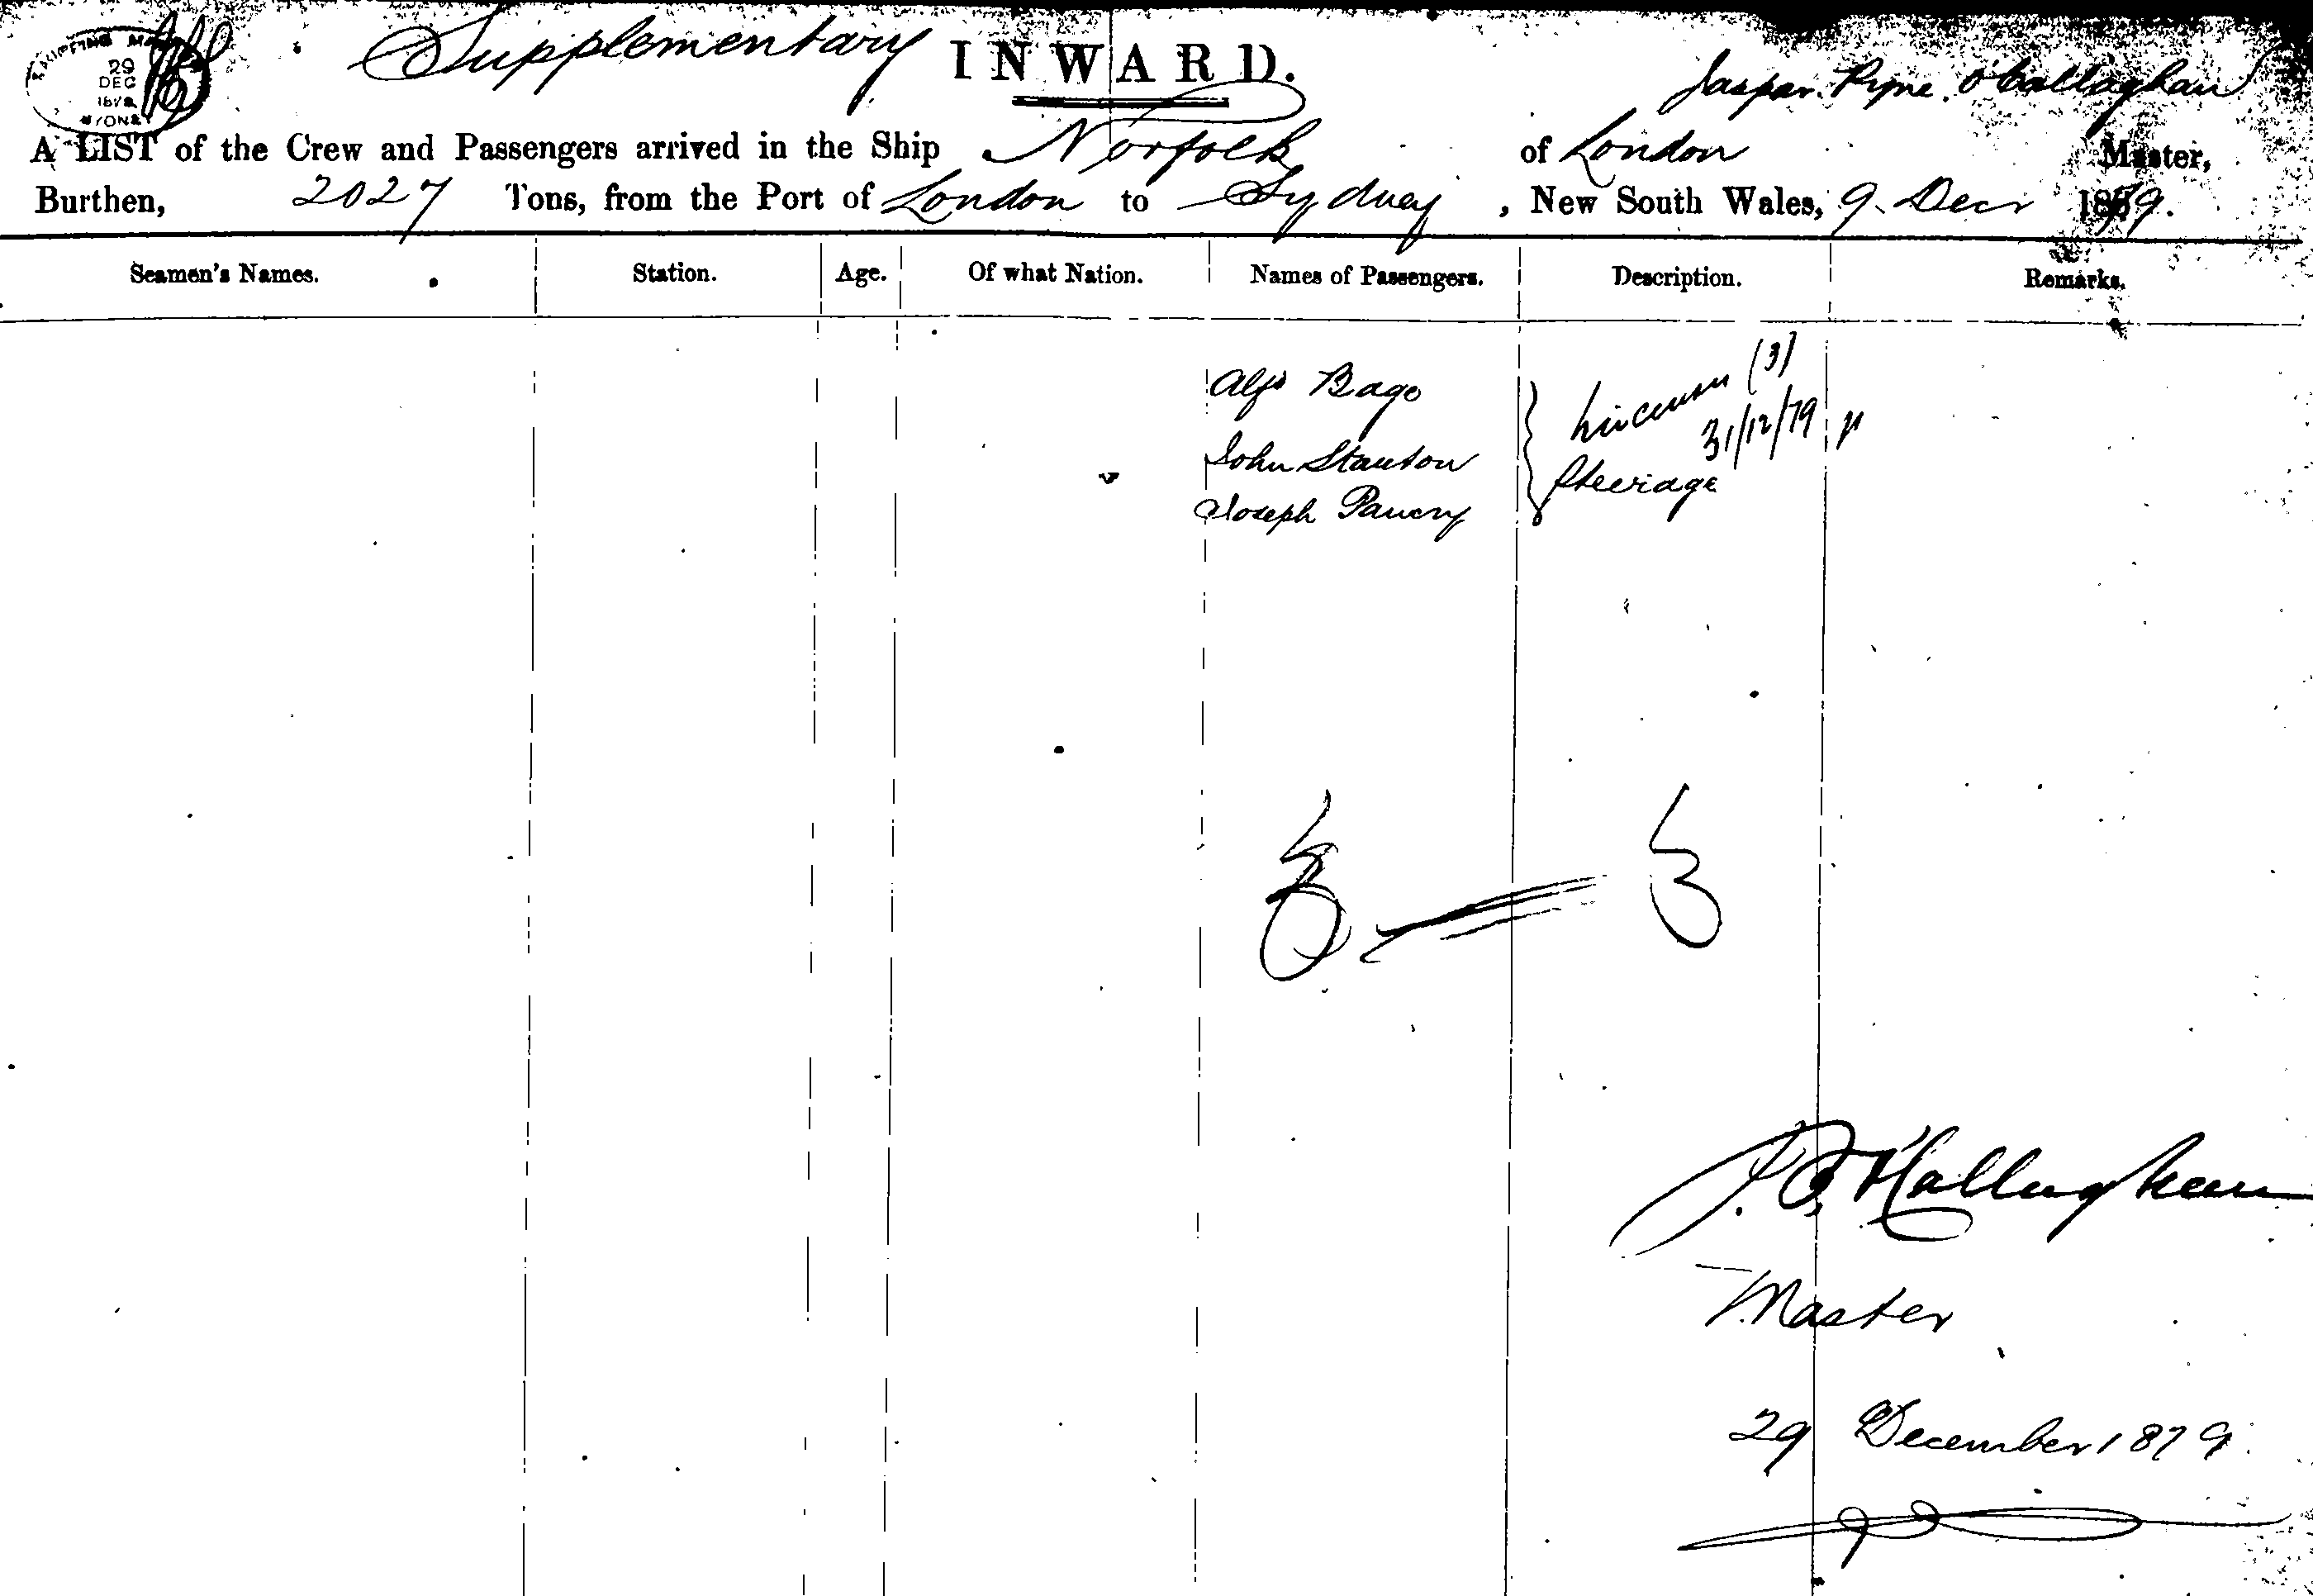 SHIPPING MA
29
DEC
SYDNEY
Supplementary INWARD.
Jasper Pyne O'Callaghan
A LIST of the Crew and Passengers arrived in the Ship Norfolk of London Master,
Burthen, 2027 Tons, from the Port of London to Sydney, New South Wales, 9 Decr 1879.
Seamen's Names. Station. Age. Of what Nation. Names of Passengers. Description. Remarks.
Alfd Bage (3)
31/12/79
John Stanton
Steerage
Joseph
J. O'Callaghan
Master
29 December 1879